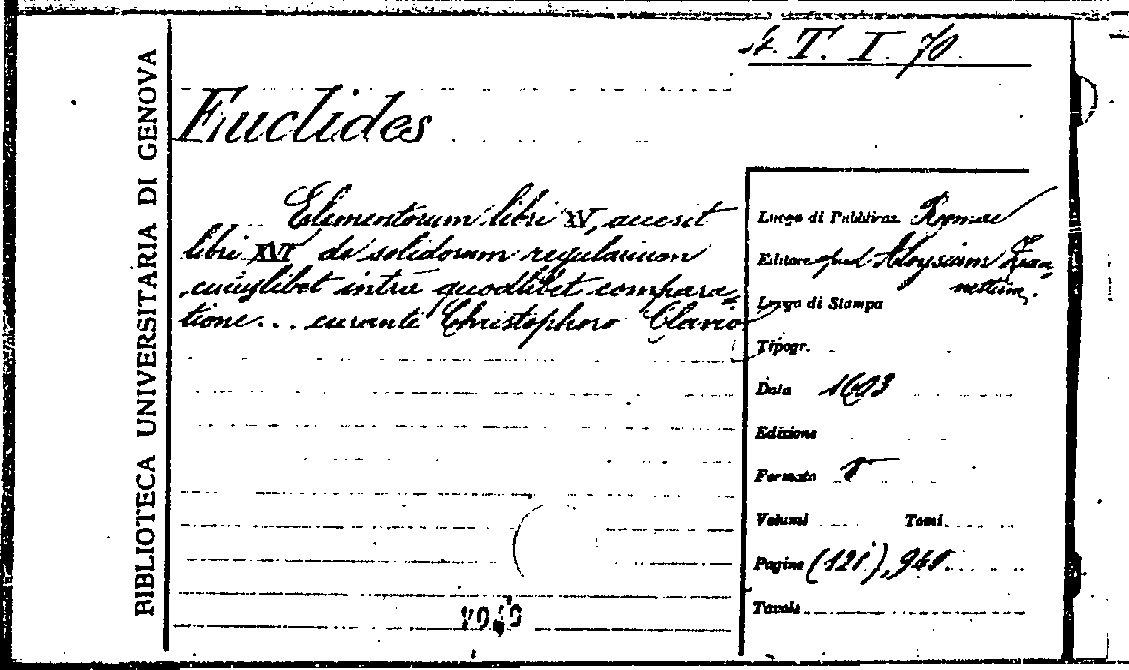 BIBLIOTECA UNIVERSITARIA DI GENOVA
T. I. 70
Euclides
Elementorum libri XV, accesit
libri XVI de solidorum regularium
cuiuslibet intra quodlibet compara=
tione... curante Christophoro Clavio
Luogo di Pubblicaz. Romae
Editore apud Aloysium Zan=
nettum.
Luogo di Stampa
Tipogr.
Data 1603
Edizione
Formato
Volumi Tomi
Pagine (121),
Tavole